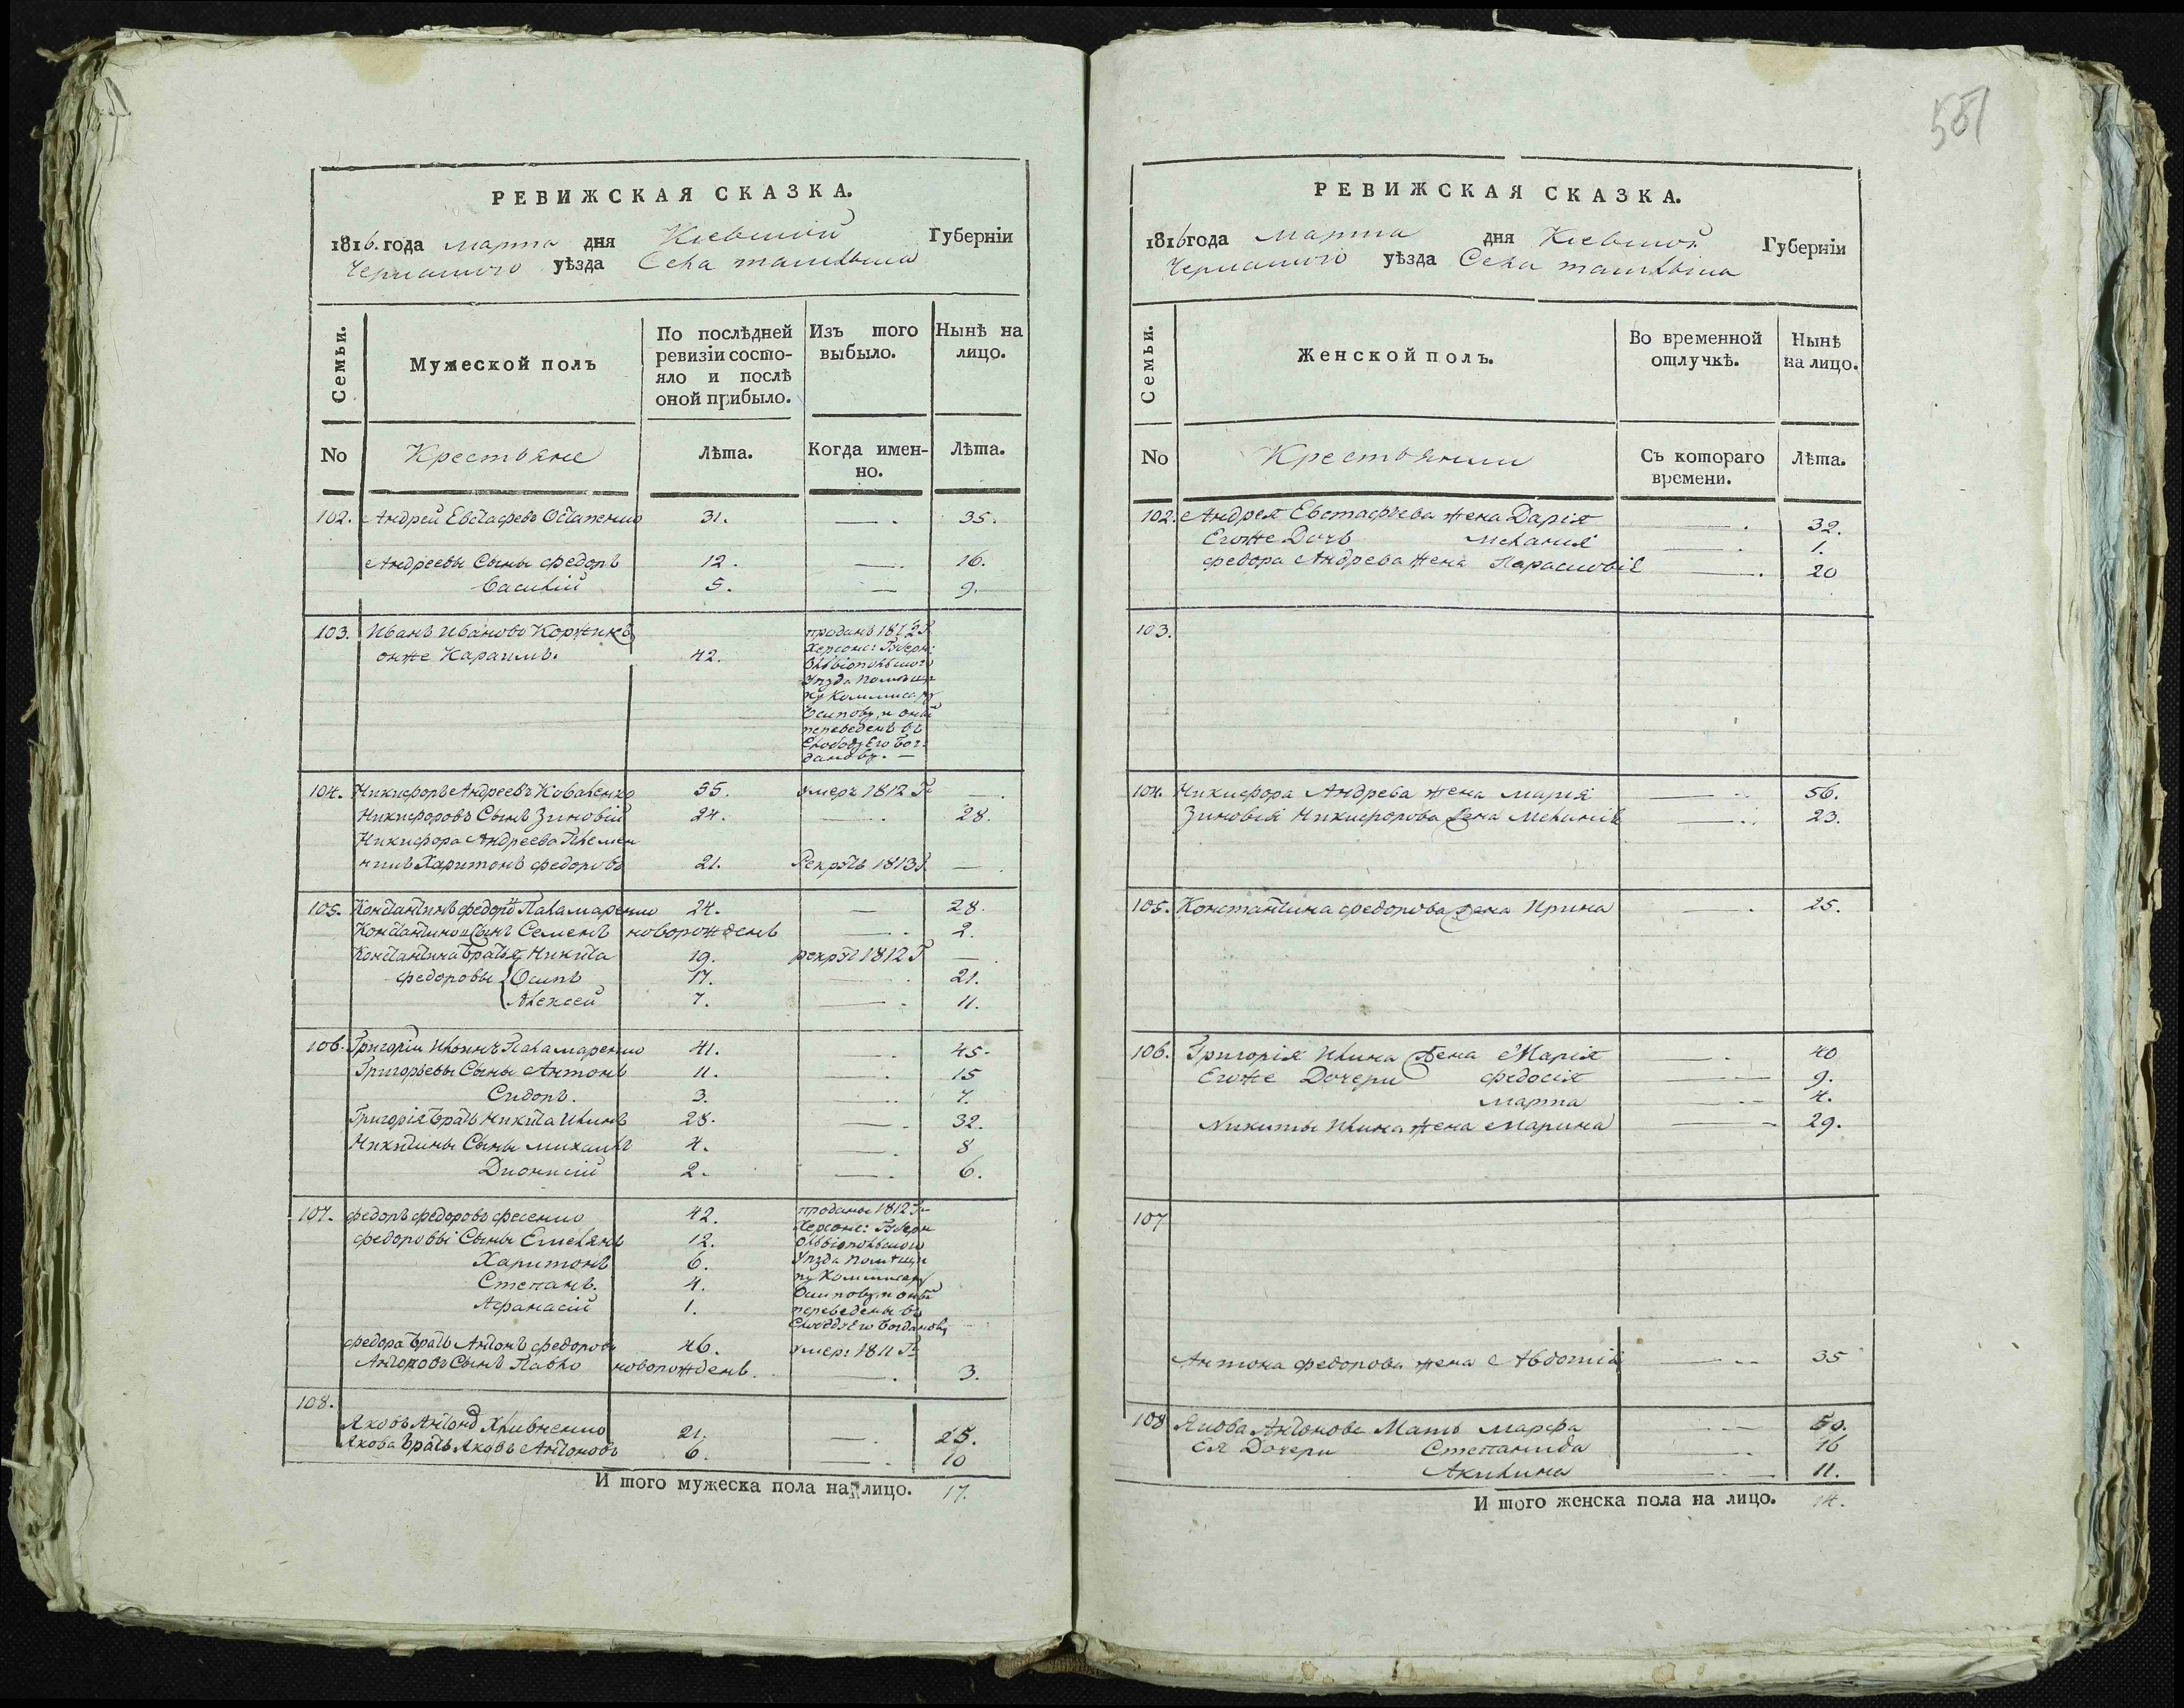 РЕВИЖСКАЯ СКАЗКА.
1816. года марта дня Киевской Губерніи
Черкаского уѣзда Села ташлыка
Семьи. Мужеской полъ По послѣдней ревизіи состояло и послѣ оной прибыло. Изъ того выбыло. Нынѣ на лицо.
No Крестьяне Лѣта. Когда именно. Лѣта.
102. Андрей Евстафьевъ Остапенко 31. — 35.
Андреевы Сыны Федоръ 12. — 16.
Василій 5. — 9.
103. Иванъ Ивановъ Коржикъ
онже Караимъ. 42.
проданъ 1812 Г.
Херсонс: Губерн:
Ольвіопольского
Уѣзда помѣщи
ку Коммисару
Осипову, и оной
переведенъ въ
Слободу Его Бог
дановку. —
104. Никифоръ Андреевъ Коваленко 55. умеръ 1812 Г. —
Никифоровъ Сынъ Зиновій 24. — 28.
Никифора Андреева Племен
никъ Харитонъ Федоровъ 21. Рекрутъ 1813 Г. —
105. Константинъ Федоровъ Паламаренко 24. — 28.
Константиновъ Сынъ Семенъ новорожденъ — 2.
Константина Братья Никита 19. рекрутъ 1812 Г —
Федоровы Осипъ 17. — 21.
Алексей 7. — 11.
106. Григорій Ильинъ Паламаренко 41. — 45.
Григорьевы Сыны Антонъ 11. — 15
Сидоръ. 3. — 7.
Григорія Братъ Никита Ильинъ 28. — 32.
Никитины Сыны Михаилъ 4. — 8
Дионисій 2. — 6.
107. Федоръ Федоровъ Фесенко 42.
Федоровы Сыны Емельянъ 12.
Харитонъ 6.
Степанъ. 4.
Афанасій 1.
проданы 1812 Г.
Херсонс: Губерн
Ольвіопольского
Уѣзда помѣщи
ку Коммисару
Осипову, и оные
переведены въ
Слободу Его Богдановку
Федора Братъ Антонъ Федоровъ 46. умер: 1811 Г.
Антоновъ Сынъ Павло новорожденъ. — 3.
108.
Яковъ Антонов Хливненко 21. — 25.
Якова Братъ Яковъ Антоновъ 6. — 10
И того мужеска пола на лицо. 17.
581
РЕВИЖСКАЯ СКАЗКА.
1816 года марта дня Киевской Губерніи
Черкаского уѣзда Села ташлыка
Семьи. Женской полъ. Во временной отлучкѣ. Нынѣ на лицо.
No Крестьянки Съ котораго времени. Лѣта.
102. Андрея Евстафьева жена Дарія — 32.
Егоже Дочь Меланія — 1.
Федора Андреева жена Парасковія — 20
103.
104. Никифора Андреева жена Марія — 56.
Зиновія Никифорова жена Меланія — 23.
105. Константина Федорова жена Ирина — 25.
106. Григорія Ильина жена Марія — 40
Егоже Дочери Федосія — 9.
Марта — 4.
Никиты Ильина жена Марина — 29.
107
Антона Федорова жена Авдотія — 35
108 Якова Антонова Мать Марфа — 50.
Ея Дочери Степанида — 16
Акилина — 11.
И того женска пола на лицо. 14.